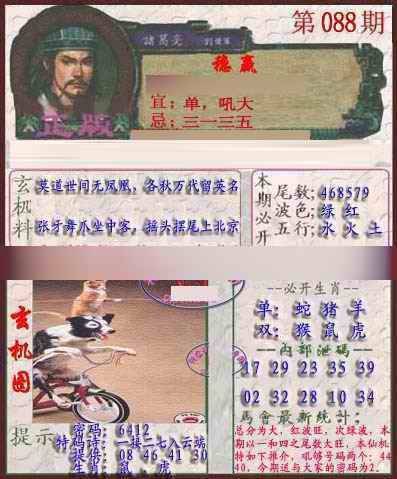 第088期
諸葛亮 劉伯溫
稳赢
宜：单，吼大
忌：三一三五
正版
玄机料
莫道世间无凤凰，各秋万代留英名
张牙舞爪坐中客，摇头摆尾上北京
本期必开
尾数：468579
波色：绿 红
五行：水 火 土
玄机图
--必开生肖--
单：蛇 猪 羊
双：猴 鼠 虎
--內部泄碼--
17 29 23 35 39
02 32 28 10 34
馬會最新統計：
总分为大，红波旺，次绿波，本
期以一和四之尾数大旺，本仙机
特如下推介，吼够号码两个：44
40，今期送与大家的密码为2。
提示
密码：6412
特码诗：一接二七入云端
提供：08 46 41 30
生肖：鼠．虎